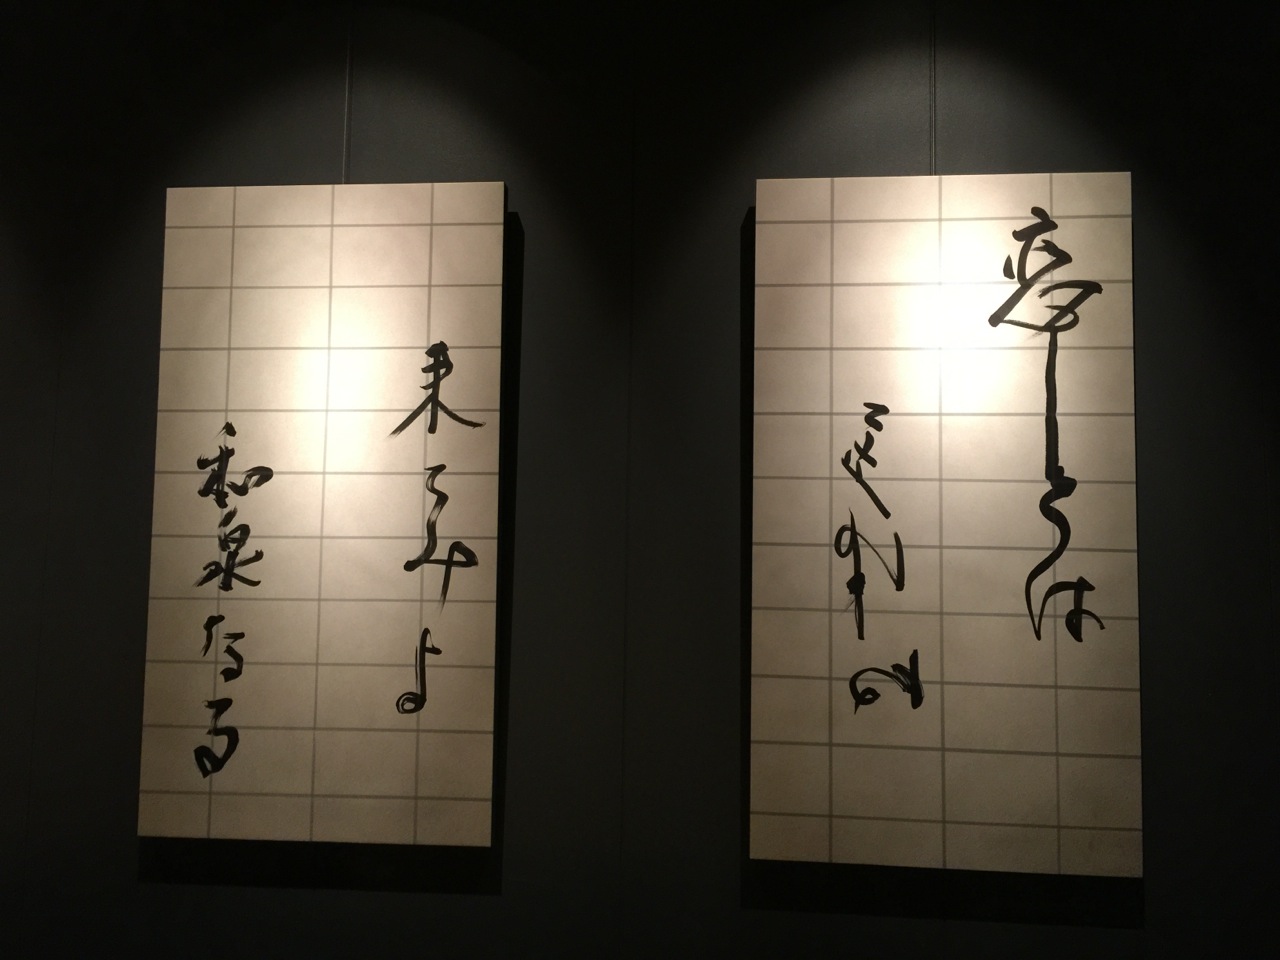 恋しくは
たづね
来てみよ
和泉なる